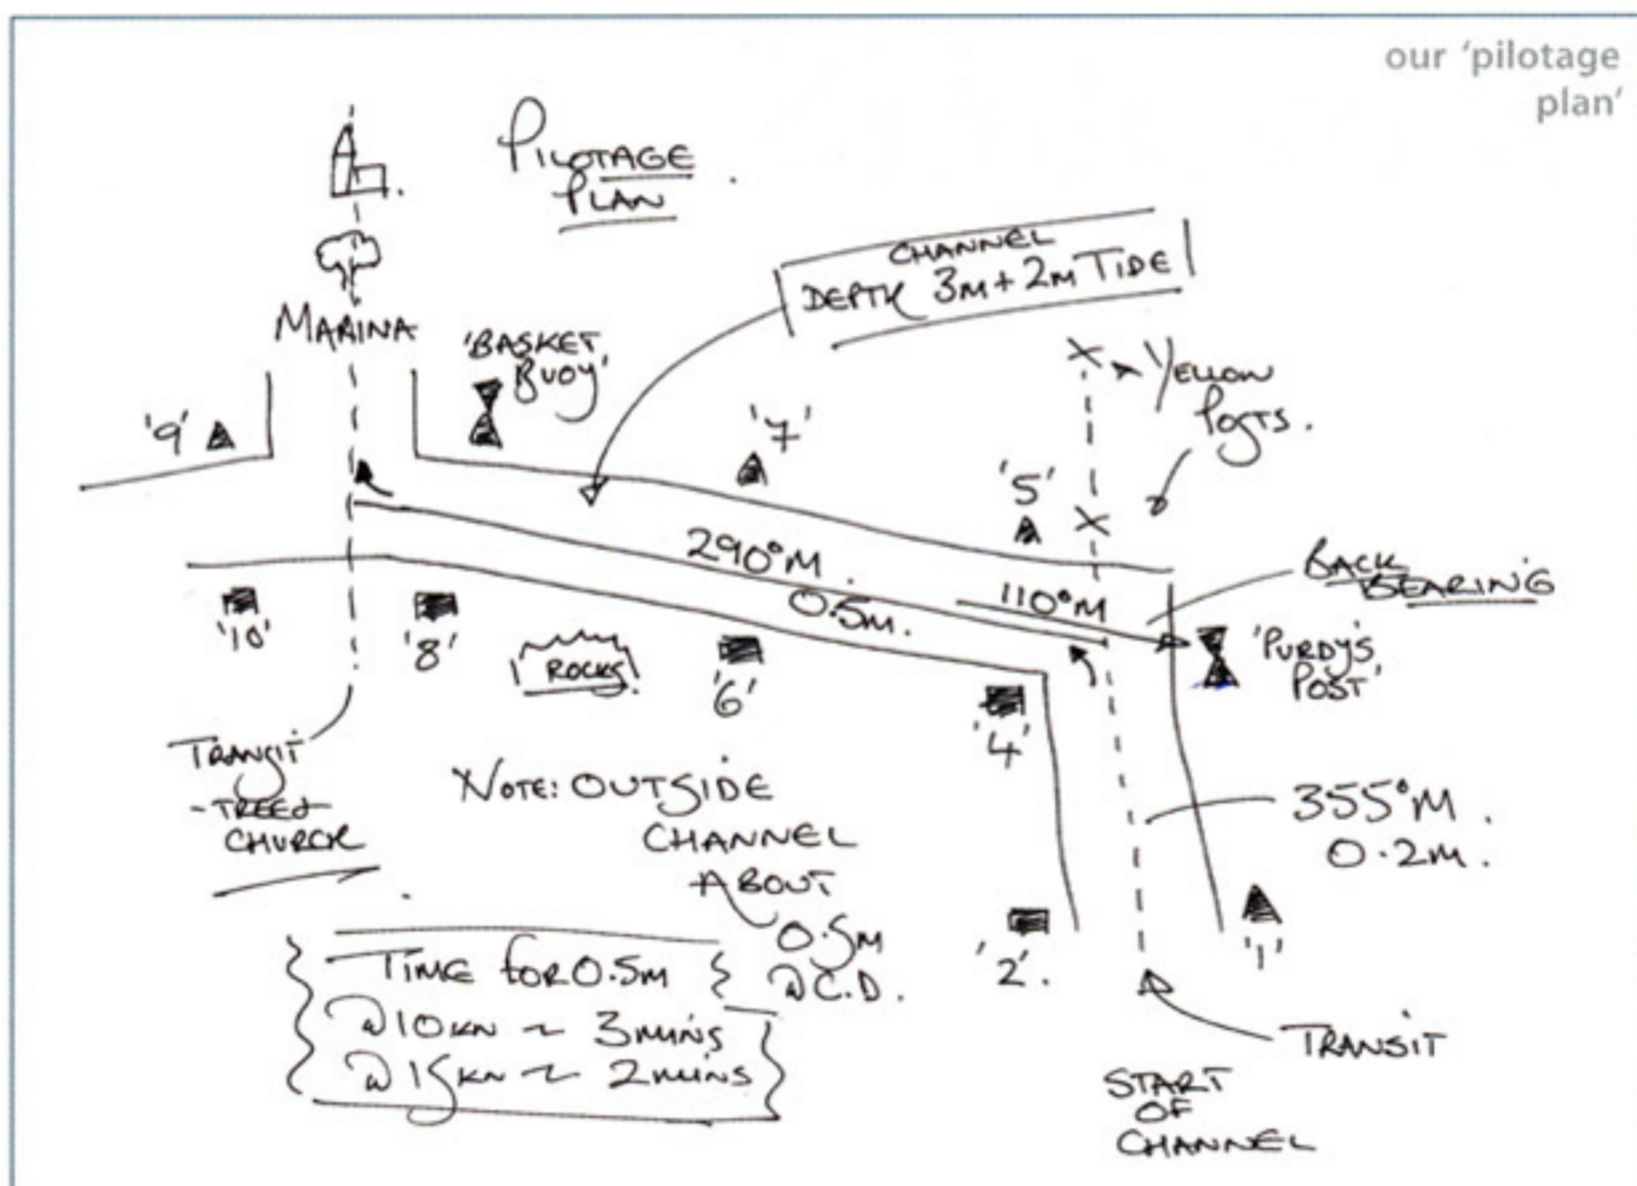 our 'pilotage
plan'
PILOTAGE
PLAN
CHANNEL
DEPTH 3M + 2M TIDE
MARINA
'BASKET
BUOY'
YELLOW
POSTS.
'9'
'7'
'5'
290°M.
0.5M.
110°M
BACK
BEARING
'10'
'8'
ROCKS
'6'
'4'
'PURDY'S
POST'
TRANSIT
- TREE &
CHURCH
NOTE: OUTSIDE
CHANNEL
ABOUT
0.5M
@ C.D.
355°M.
0.2M.
'2'.
'1'
TIME FOR 0.5M
@ 10KN ~ 3 MINS
@ 15KN ~ 2 MINS
TRANSIT
START
OF
CHANNEL